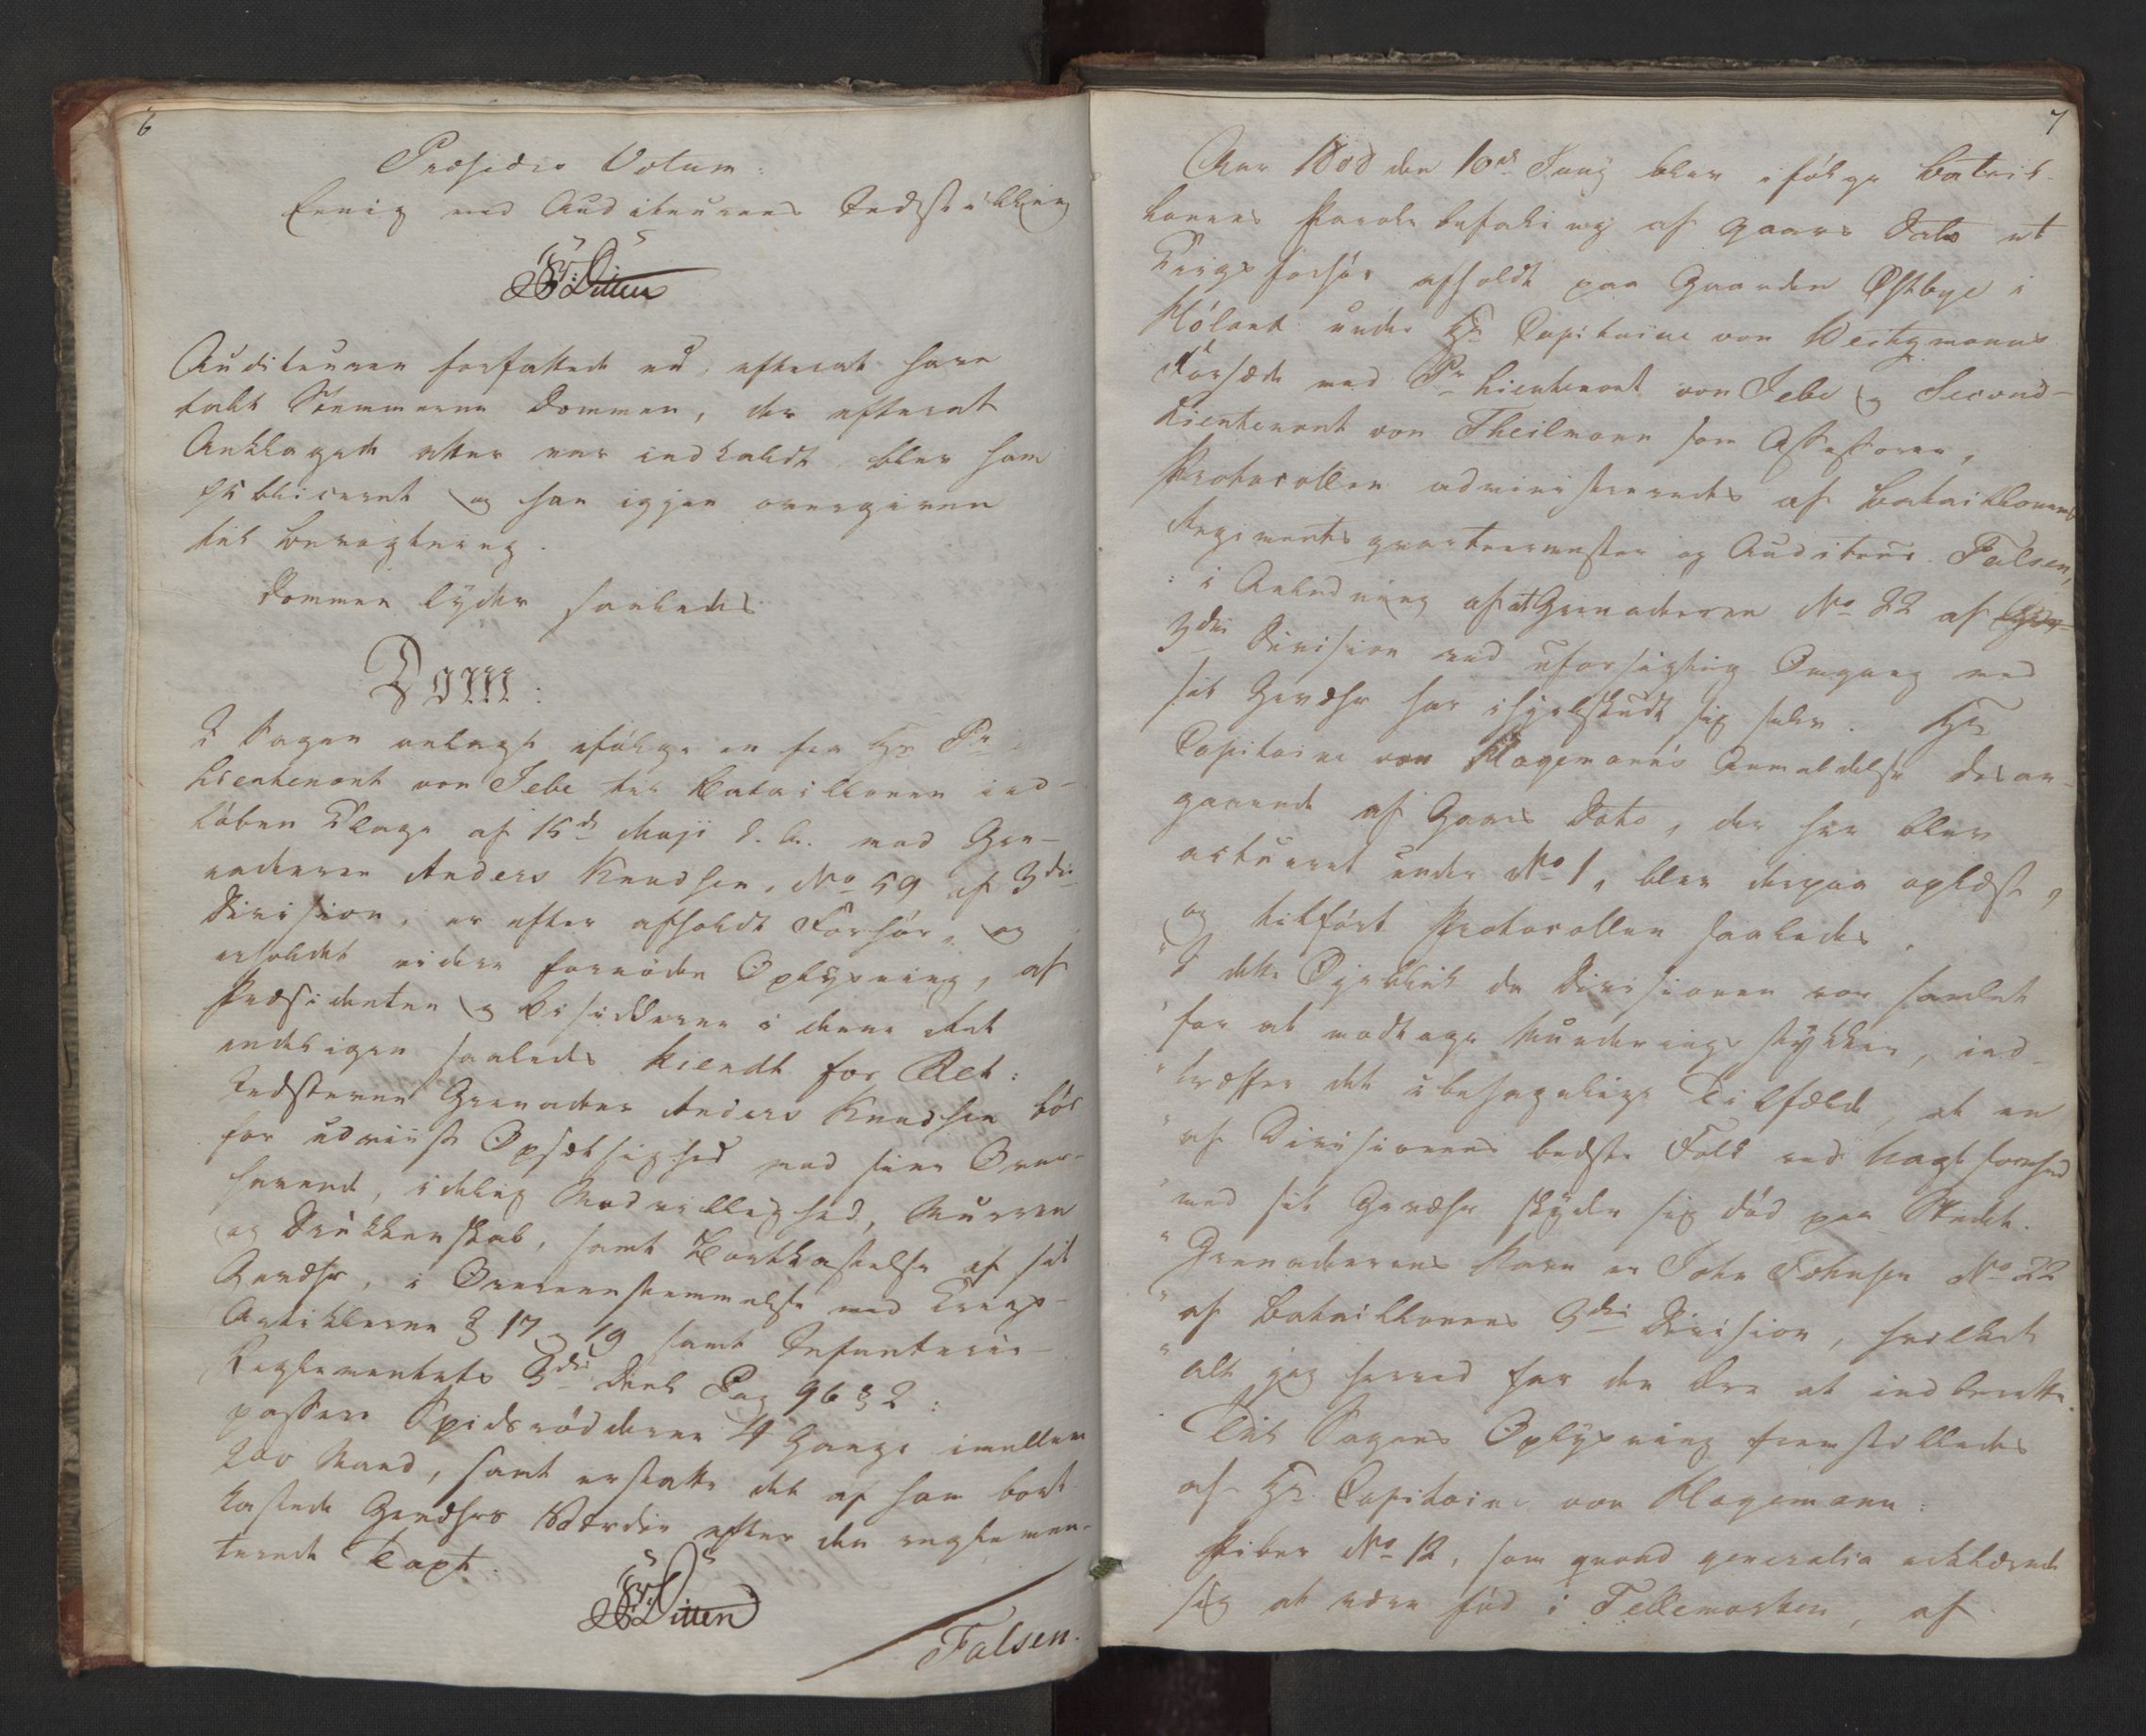 6
Præsidis Votum:
Eenig med Auditeurens Indstilling
Ditten
Auditeuren forfattede nu, efterat have
talt Stemmerne Dommen, der efterat
Anklagede atter var indkaldt blev ham
publiceret og han igjen overgiven
til Bevogtning.
Dommen lyder saaledes
Dom:
I Sagen anlagt ifölge en fra Hr Pr
Lieutenant von Jebe til Bataillonen ind-
löben Klage af 15de Maji d. A. mod Gre-
naderen Anders Knudsen, No 59 af 3die
Division, er efter afholdt Forhör, og
erholdet videre fornöden Oplysning, af
Præsidenten og Bisidderne i denne Ret
endeligen saaledes kiendt for Ret:
Indstevnte Grenader Anders Knudsen bör
for udviist Opsætsighed mod sine Over-
havende, idelig Modvillighed, Murren
og Drukkenskab, samt Bortkastelse af sit
Gevæhr, i Overeenstemmelse med Krigs-
Artiklerne § 17 og 19 samt Infanterie-
Reglementets 3die Deel Pag 96 § 2:
passere Spidsrödderne 4 Gange imellem
200 Mand, samt erstatte det af ham bort-
kastede Gevæhrs Værdie efter den reglemen-
terede Taxt.
Ditten
Falsen.
7
Aar 1808 den 10de Junij blev ifölge Batail-
lonens Parolebefaling af Gaars Dato et
Krigsforhör afholdt paa Gaarden Østbye i
Höland under Hr Capitaine von Weitzmanns
Forsæde med Pr Lieutenant von Jebe og Second-
Lieutenant von Theilmann som Assessorer,
Protocollen administreredes af Bataillonens
Regimentsqvarteermester og Auditeur Falsen,
: i Anledning af at Grenaderen No 22 af
3die Division ved uforsigtig Omgang med
sit Gevæhr har ihjelskudt sig selv. Hr
Capitaine von Klagemann's Anmeldelse desan-
gaaende af Gaars Dato, der her blev
acteret under No 1, blev derpaa oplæst,
og tilfört Protocollen saaledes.
"I dette Øjeblik da Divisionen var samlet
"for at modtage Munderings stykker, ind-
"træffer det ubehagelige Tilfælde, at en
"af Divisionens bedste Folk ved Uagtsomhed
"med sit Gevæhr skyder sig död paa Stedet.
"Grenaderens Navn er John Johnsen No 22
"af Bataillonens 3die Division, hvilket
"alt jeg herved har den Ære at indberette.
Til Sagens Oplysning fremstilledes
af Hr. Capitaine von Klagemann:
Piber No 12, som qvoad generalia erklærede
sig at være föd i Tellemarken, af